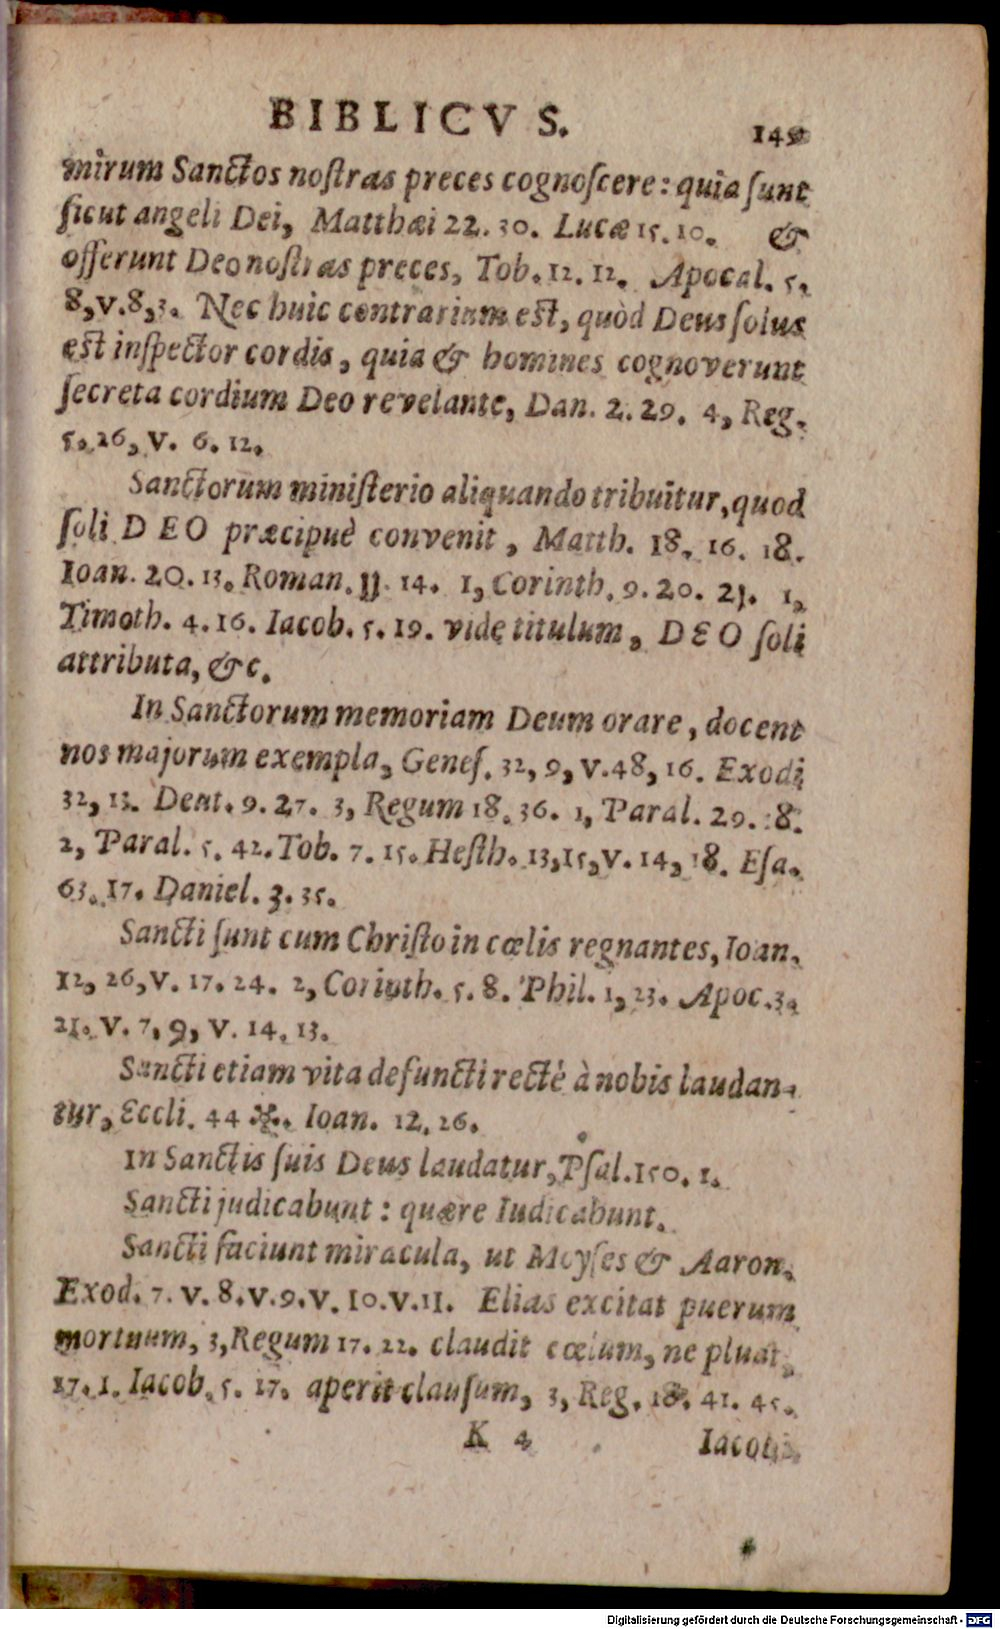 BIBLICVS. 149
mirum Sanctos noſtras preces cognoſcere: quia ſunt
ſicut angeli Dei, Matthæi 22. 30. Lucæ 15. 10. &
offerunt Deo noſtras preces, Tob. 12. 12. Apocal. 5.
8, v. 8, 3. Nec huic contrarium eſt, quòd Deus ſolus
eſt inſpector cordis, quia & homines cognoverunt
ſecreta cordium Deo revelante, Dan. 2. 29. 4, Reg.
5. 26, v. 6. 12.
Sanctorum miniſterio aliquando tribuitur, quod
ſoli DEO præcipuè convenit, Matth. 18. 16. 18.
Ioan. 20. 13. Roman. 11. 14. 1, Corinth. 9. 20. 21. 1,
Timoth. 4. 16. Iacob. 5. 19. vide titulum, DEO ſoli
attributa, &c.
In Sanctorum memoriam Deum orare, docent
nos majorum exempla, Geneſ. 32, 9, v. 48, 16. Exodi
32, 13. Deut. 9. 27. 3, Regum 18. 36. 1, Paral. 29. 18.
2, Paral. 5. 42. Tob. 7. 15. Heſth. 13, 15, v. 14, 18. Eſa.
63. 17. Daniel. 3. 35.
Sancti ſunt cum Chriſto in cœlis regnantes, Ioan.
12, 26, v. 17. 24. 2, Corinth. 5. 8. Phil. 1, 23. Apoc. 3.
21. v. 7, 9, v. 14. 13.
Sancti etiam vita defuncti rectè à nobis laudan-
tur, Eccli. 44 *. Ioan. 12. 26.
In Sanctis ſuis Deus laudatur, Pſal. 150. 1.
Sancti judicabunt: quære Iudicabunt.
Sancti faciunt miracula, ut Moyſes & Aaron.
Exod. 7. v. 8. v. 9. v. 10. v. 11. Elias excitat puerum
mortuum, 3, Regum 17. 22. claudit cœlum, ne pluat,
17. 1. Iacob. 5. 17. aperit clauſum, 3, Reg. 18. 41. 45.
K 4 Iacobi.
Digitalisierung gefördert durch die Deutsche Forschungsgemeinschaft - DFG